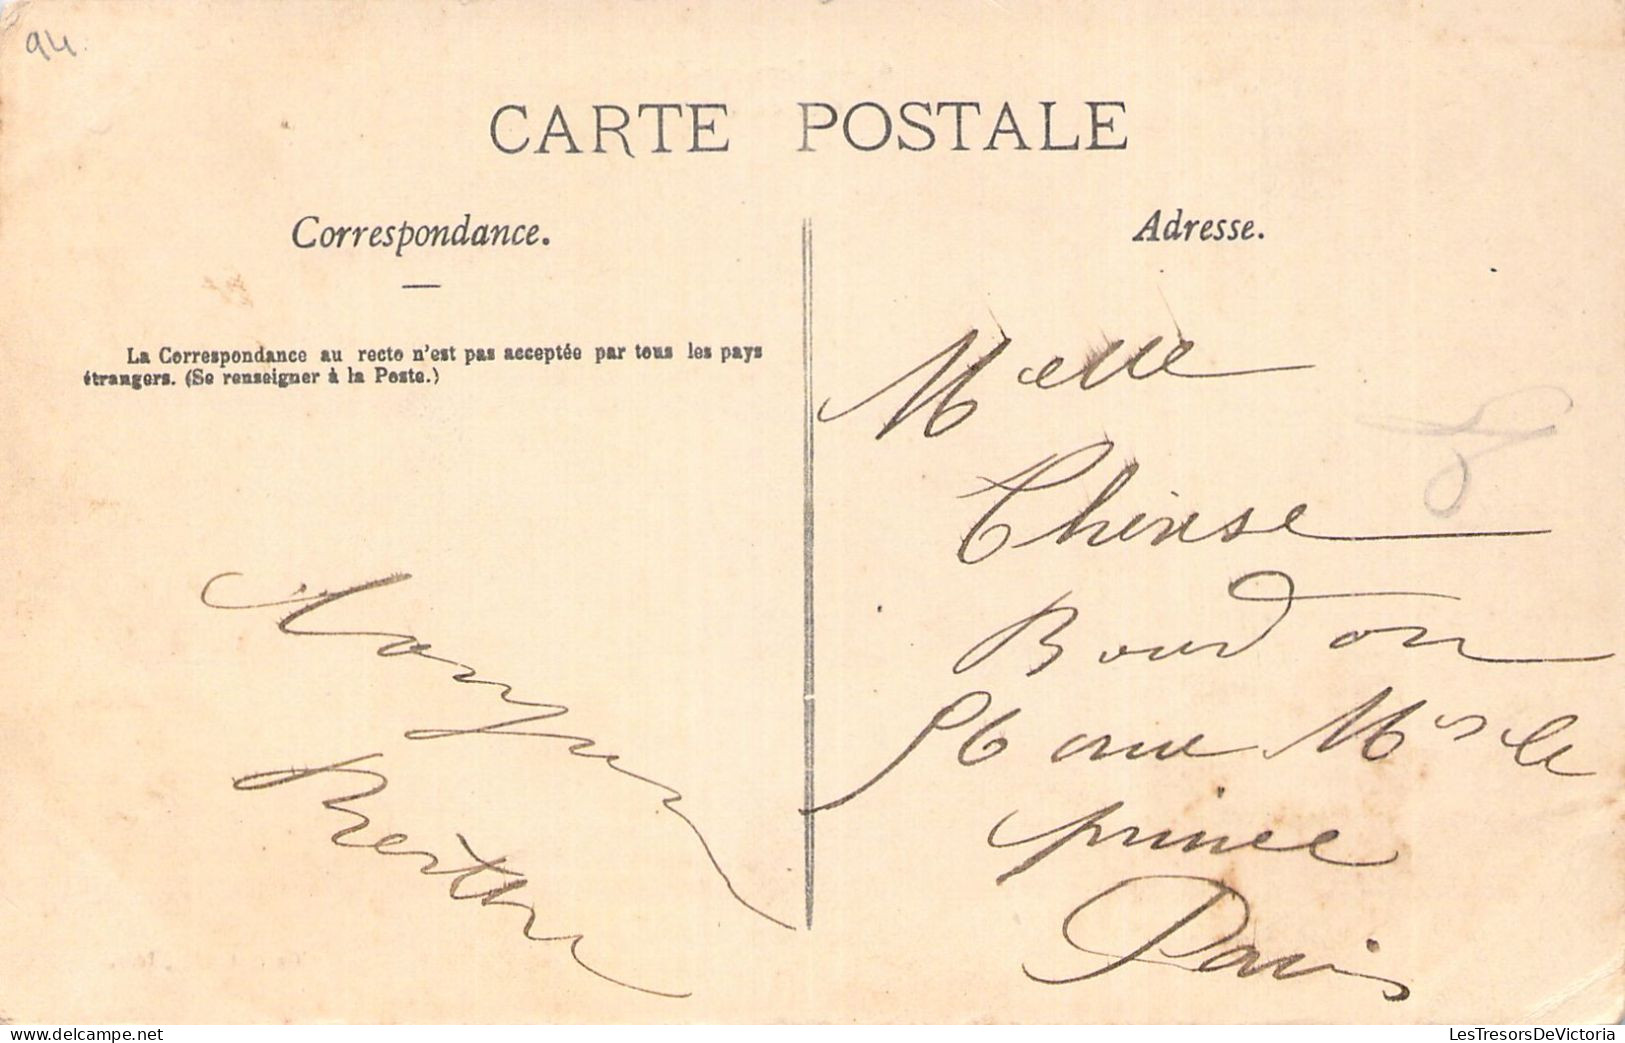 94
CARTE POSTALE
Correspondance.
La Correspondance au recto n'est pas acceptée par tous les pays
étrangers. (Se renseigner à la Poste.)
Berthe
Adresse.
Melle
Thérèse
Bourdon
56 rue Mr le
prince
Paris
LesTresorsDeVictoria